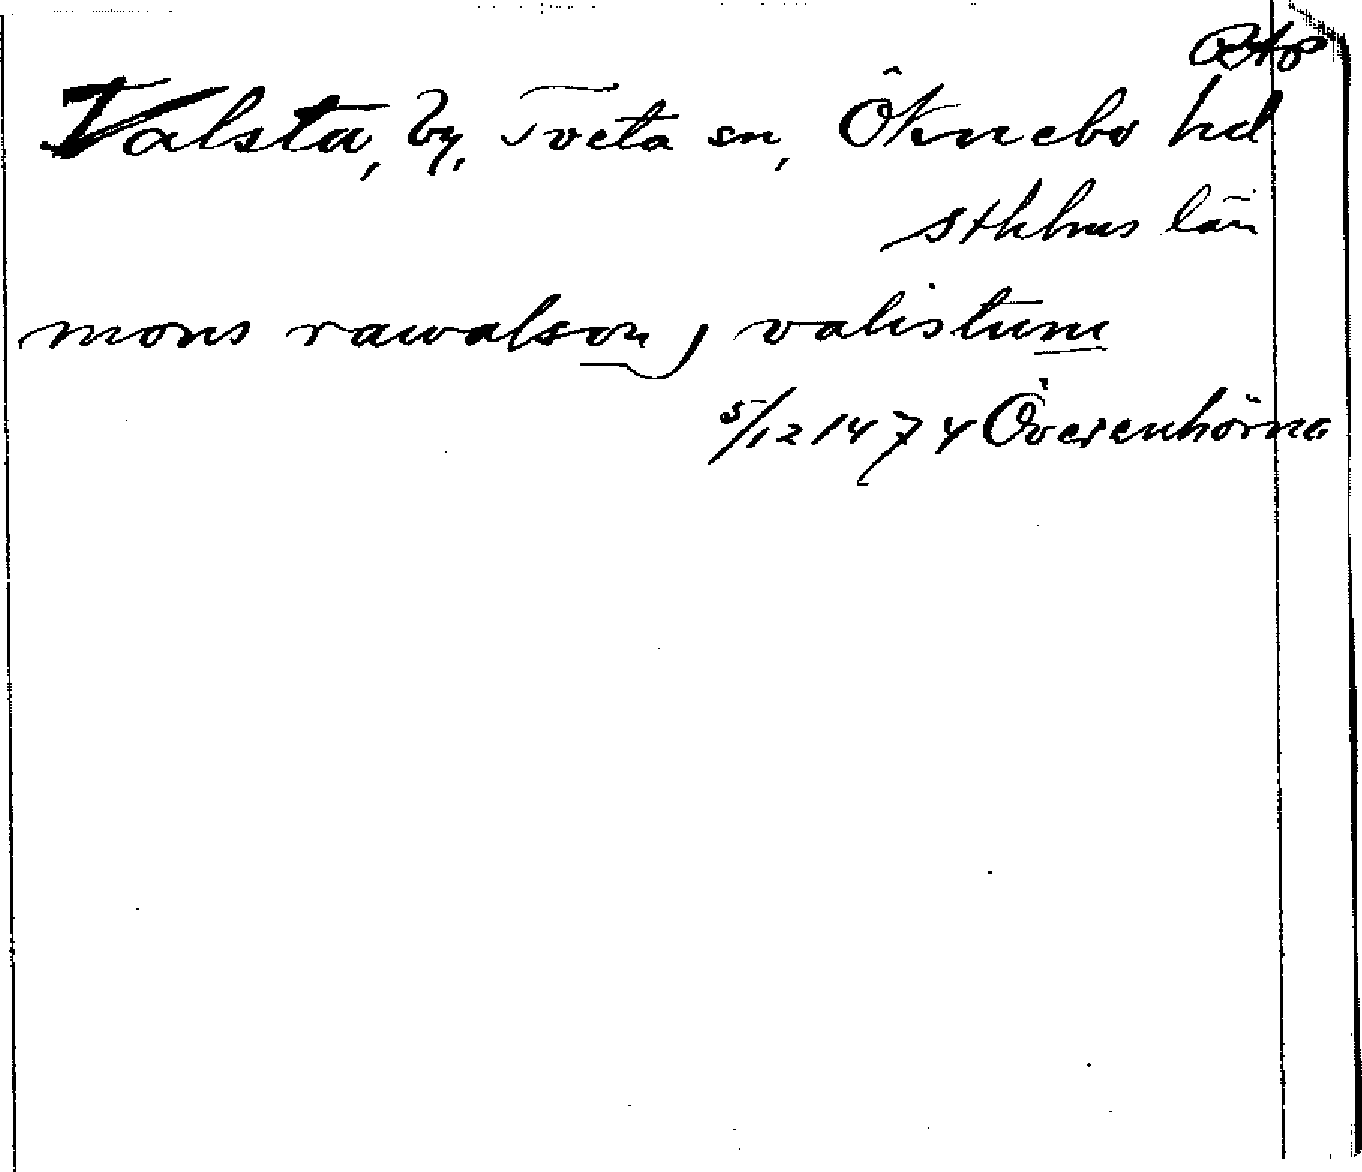 RAp
Valsta, by, Tveta sn, Öknebo hd
Sthlms län
mons rawalson, valistum
5/12 1474 Överenhörna